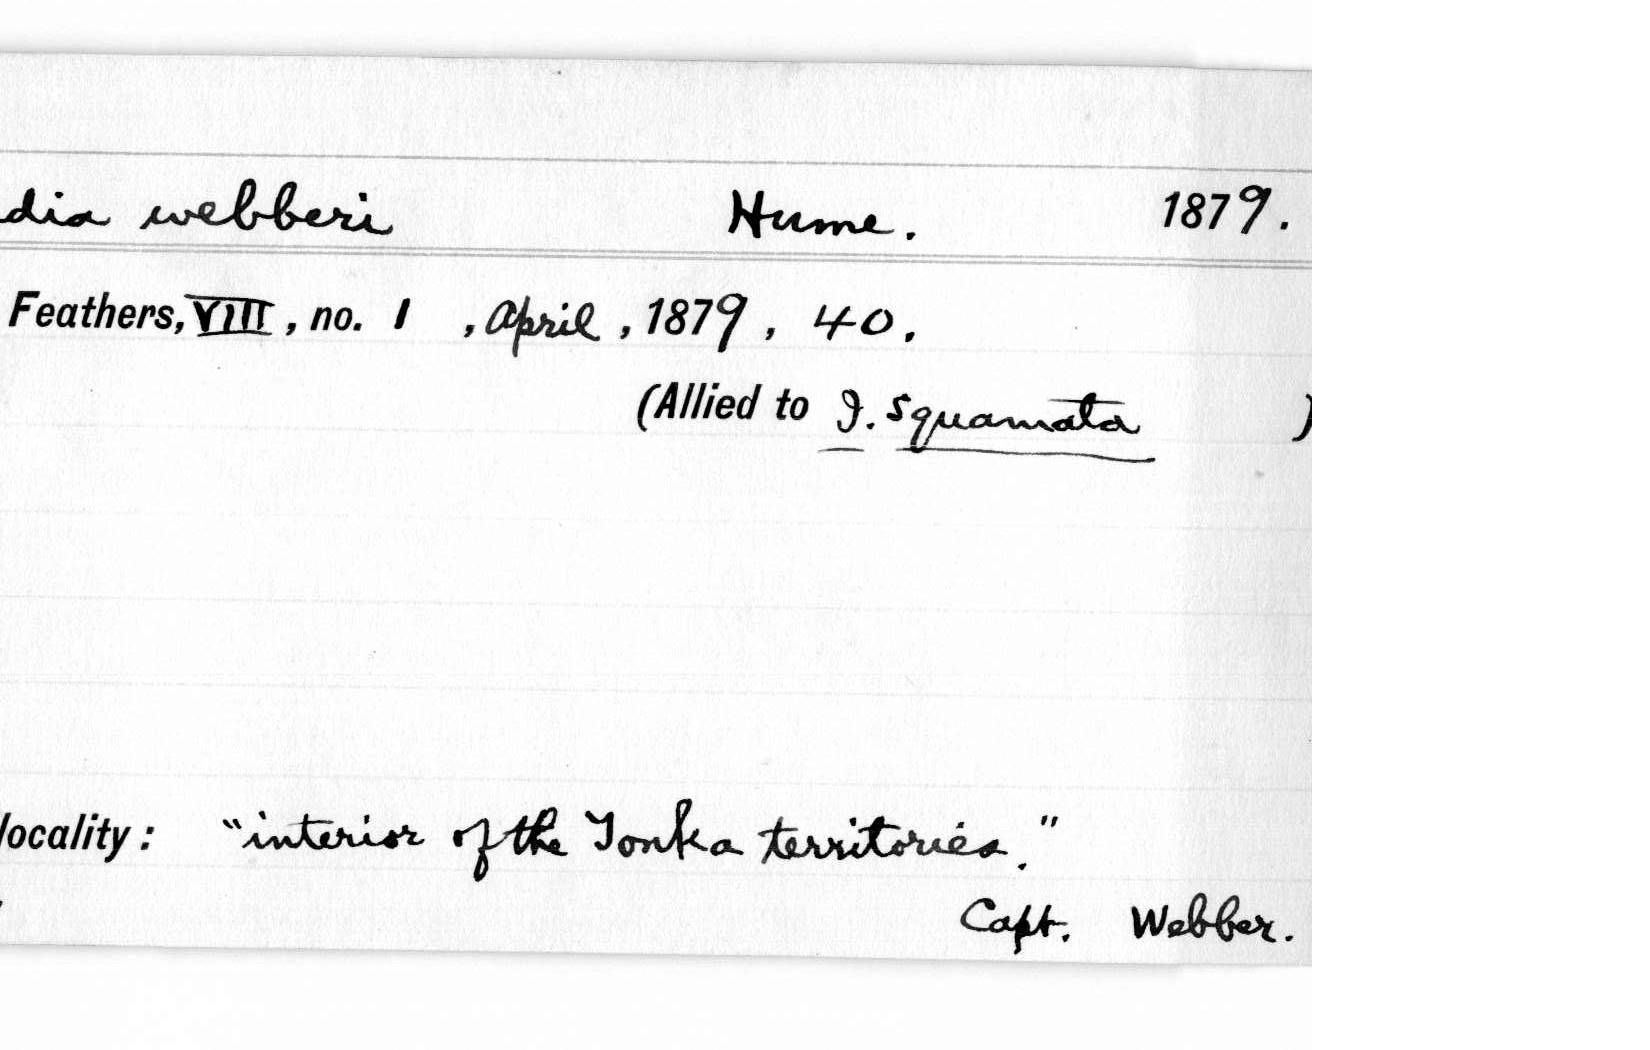 dia webberi Hume. 1879.
Feathers, VIII, no. 1, April, 1879, 40.
(Allied to I. squamata )
locality: "interior of the Tonka territories."
Capt. Webber.